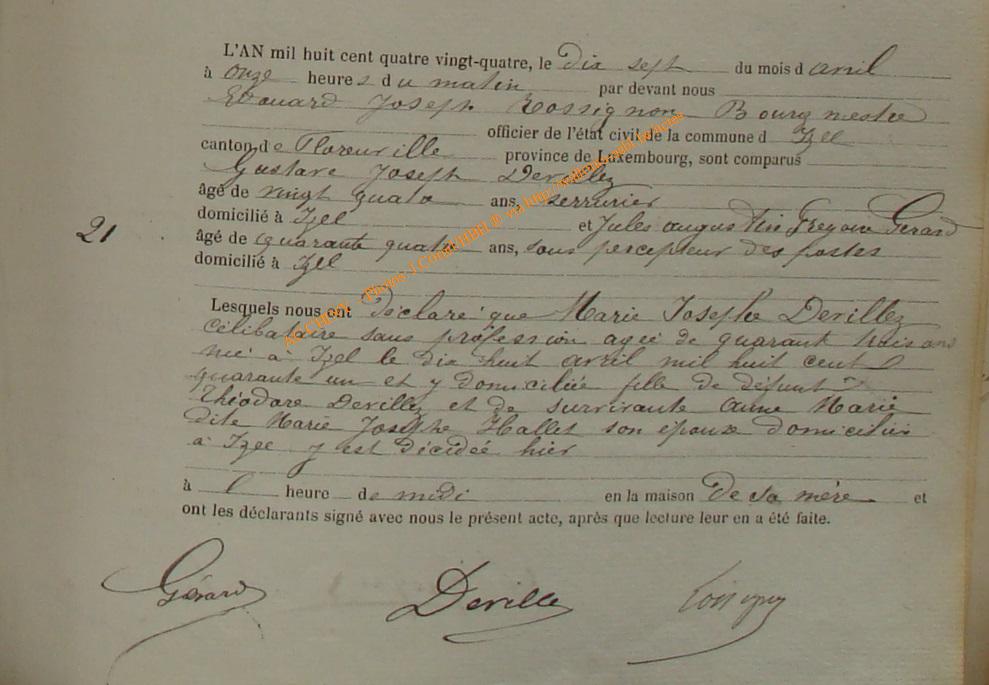 L'AN mil huit cent quatre vingt-quatre, le dix sept du mois d avril
à onze heures du matin par devant nous
Edouard Joseph Rossignon Bourgmestre
officier de l'état civil de la commune d Izel
canton de Florenville province de Luxembourg, sont comparus
Gustave Joseph Devillez
âgé de vingt quatre ans, serrurier
domicilié à Izel et Jules augustin Gregoire Gérard
21
âgé de quarante quatre ans, sous percepteur des postes
domicilié à Izel
Lesquels nous ont déclaré que Marie Josephe Devillez
célibataire sans profession agée de quarante trois ans
née à Izel le dix huit avril mil huit cent
quarante un et y domiciliée fille de défunt
Théodore Devillez et de survivante anne Marie
dite Marie Josephe Hallet son épouse domiciliée
à Izel y est décédée hier
à l heure de midi en la maison de sa mère et
ont les déclarants signé avec nous le présent acte, après que lecture leur en a été faite.
Gérard Devillez Rossignon